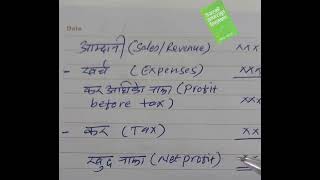 Date
आम्दानी (Sales/Revenue) xxx
- खर्च (Expenses) xxx
कर अघिको नाफा (Profit before tax) xxx
- कर (Tax) xxx
खुद नाफा (Net profit)